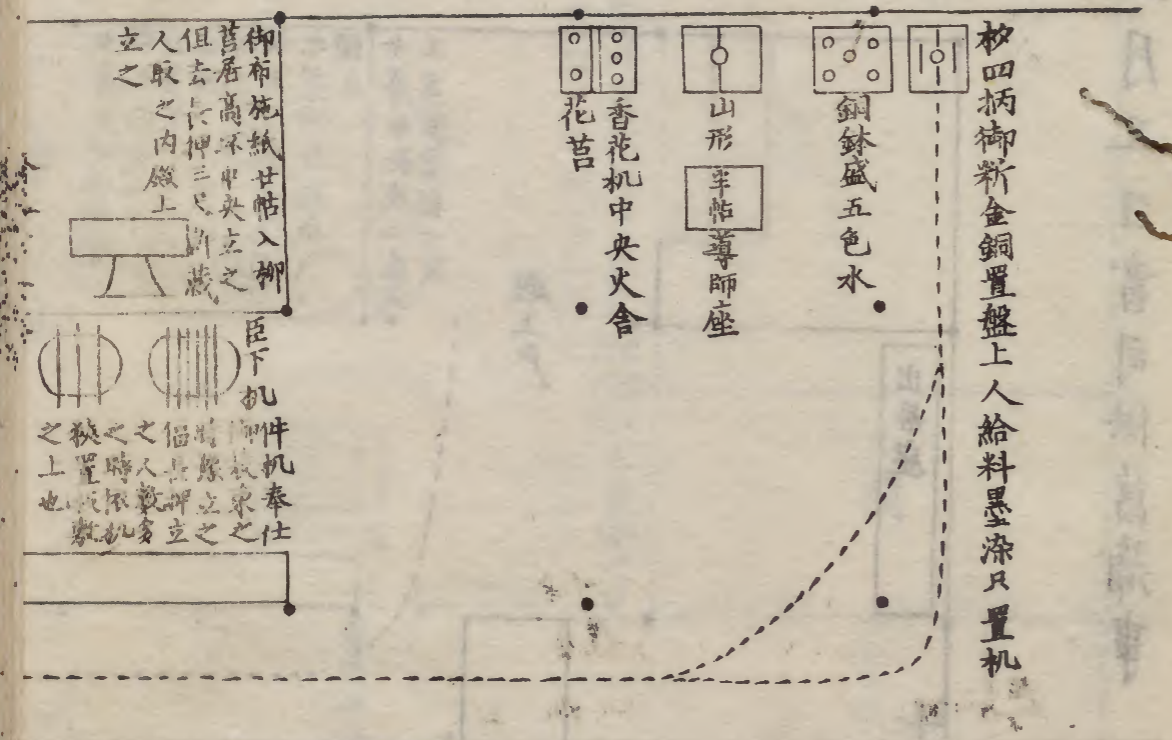 杓四柄御新金銅置盤上人給料墨染只置机
銅鉢盛五色水
山形
半帖
導師座
香花机中央火舎
花筥
御布施紙廿帖入柳
筥居高坏中央立之
但去長押三尺許蔵
人取之内殿上
立之
臣下机
件机奉仕
御装束之
時
立之
但長押立
之人数多
之時依机
狭置板敷
之上也